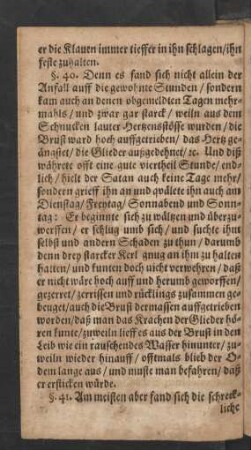 er die Klauen immer tieffer in ihn schlagen/ihn
feste zuhalten.
§. 40. Denn es fand sich nicht allein der
Anfall auff die gewohnte Stunden / sondern
kam auch an denen obgemeldten Tagen mehr-
mahls / und zwar gar starck / weiln aus dem
Schnucken lauter Hertzensstösse wurden / die
Brust ward hoch auffgetrieben / das Hertz ge-
ängstet / die Glieder ausgedehnet / ꝛc. Und diß
währete offt eine gute viertheil Stunde / end-
lich / hielt der Satan auch keine Tage mehr /
sondern grieff ihn an und qvälete ihn auch am
Dienstag / Freytag / Sonnabend und Sonn-
tag: Er beginnte sich zu wältzen und überzu-
werffen / er schlug umb sich / und suchte ihm
selbst und andern Schaden zu thun / darumb
denn drey starcker Kerl gnug an ihm zu halten
hatten / und kunten doch nicht verwehren / daß
er nicht wäre hoch auff und herumb geworffen /
gezerret / zerrissen und rücklings zusammen ge-
beuget / auch die Brust dermassen auffgetrieben
worden / daß man das Krachen der Glieder hö-
ren kunte / zuweiln lieff es aus der Brust in den
Leib wie ein rauschendes Wasser hinunter / zu-
weiln wieder hinauff / offtmals blieb der O-
dem lange aus / und muste man befahren / daß
er ersticken würde.
§. 41. Am meisten aber fand sich die schreck-
liche